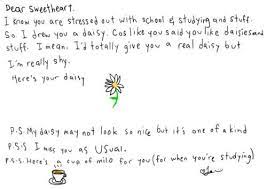 Dear Sweetheart.
I know you are stressed out with school & studying and stuff.
So I drew you a daisy. Cos like you said you like daisies and
stuff. I mean. I'd totally give you a real daisy but
I'm really shy.
Here's your daisy
P.S. My daisy may not look so nice but it's one of a kind
P.S.S I miss you as USual.
P.S.S. Here's a cup of milo for you (for when you're studying)